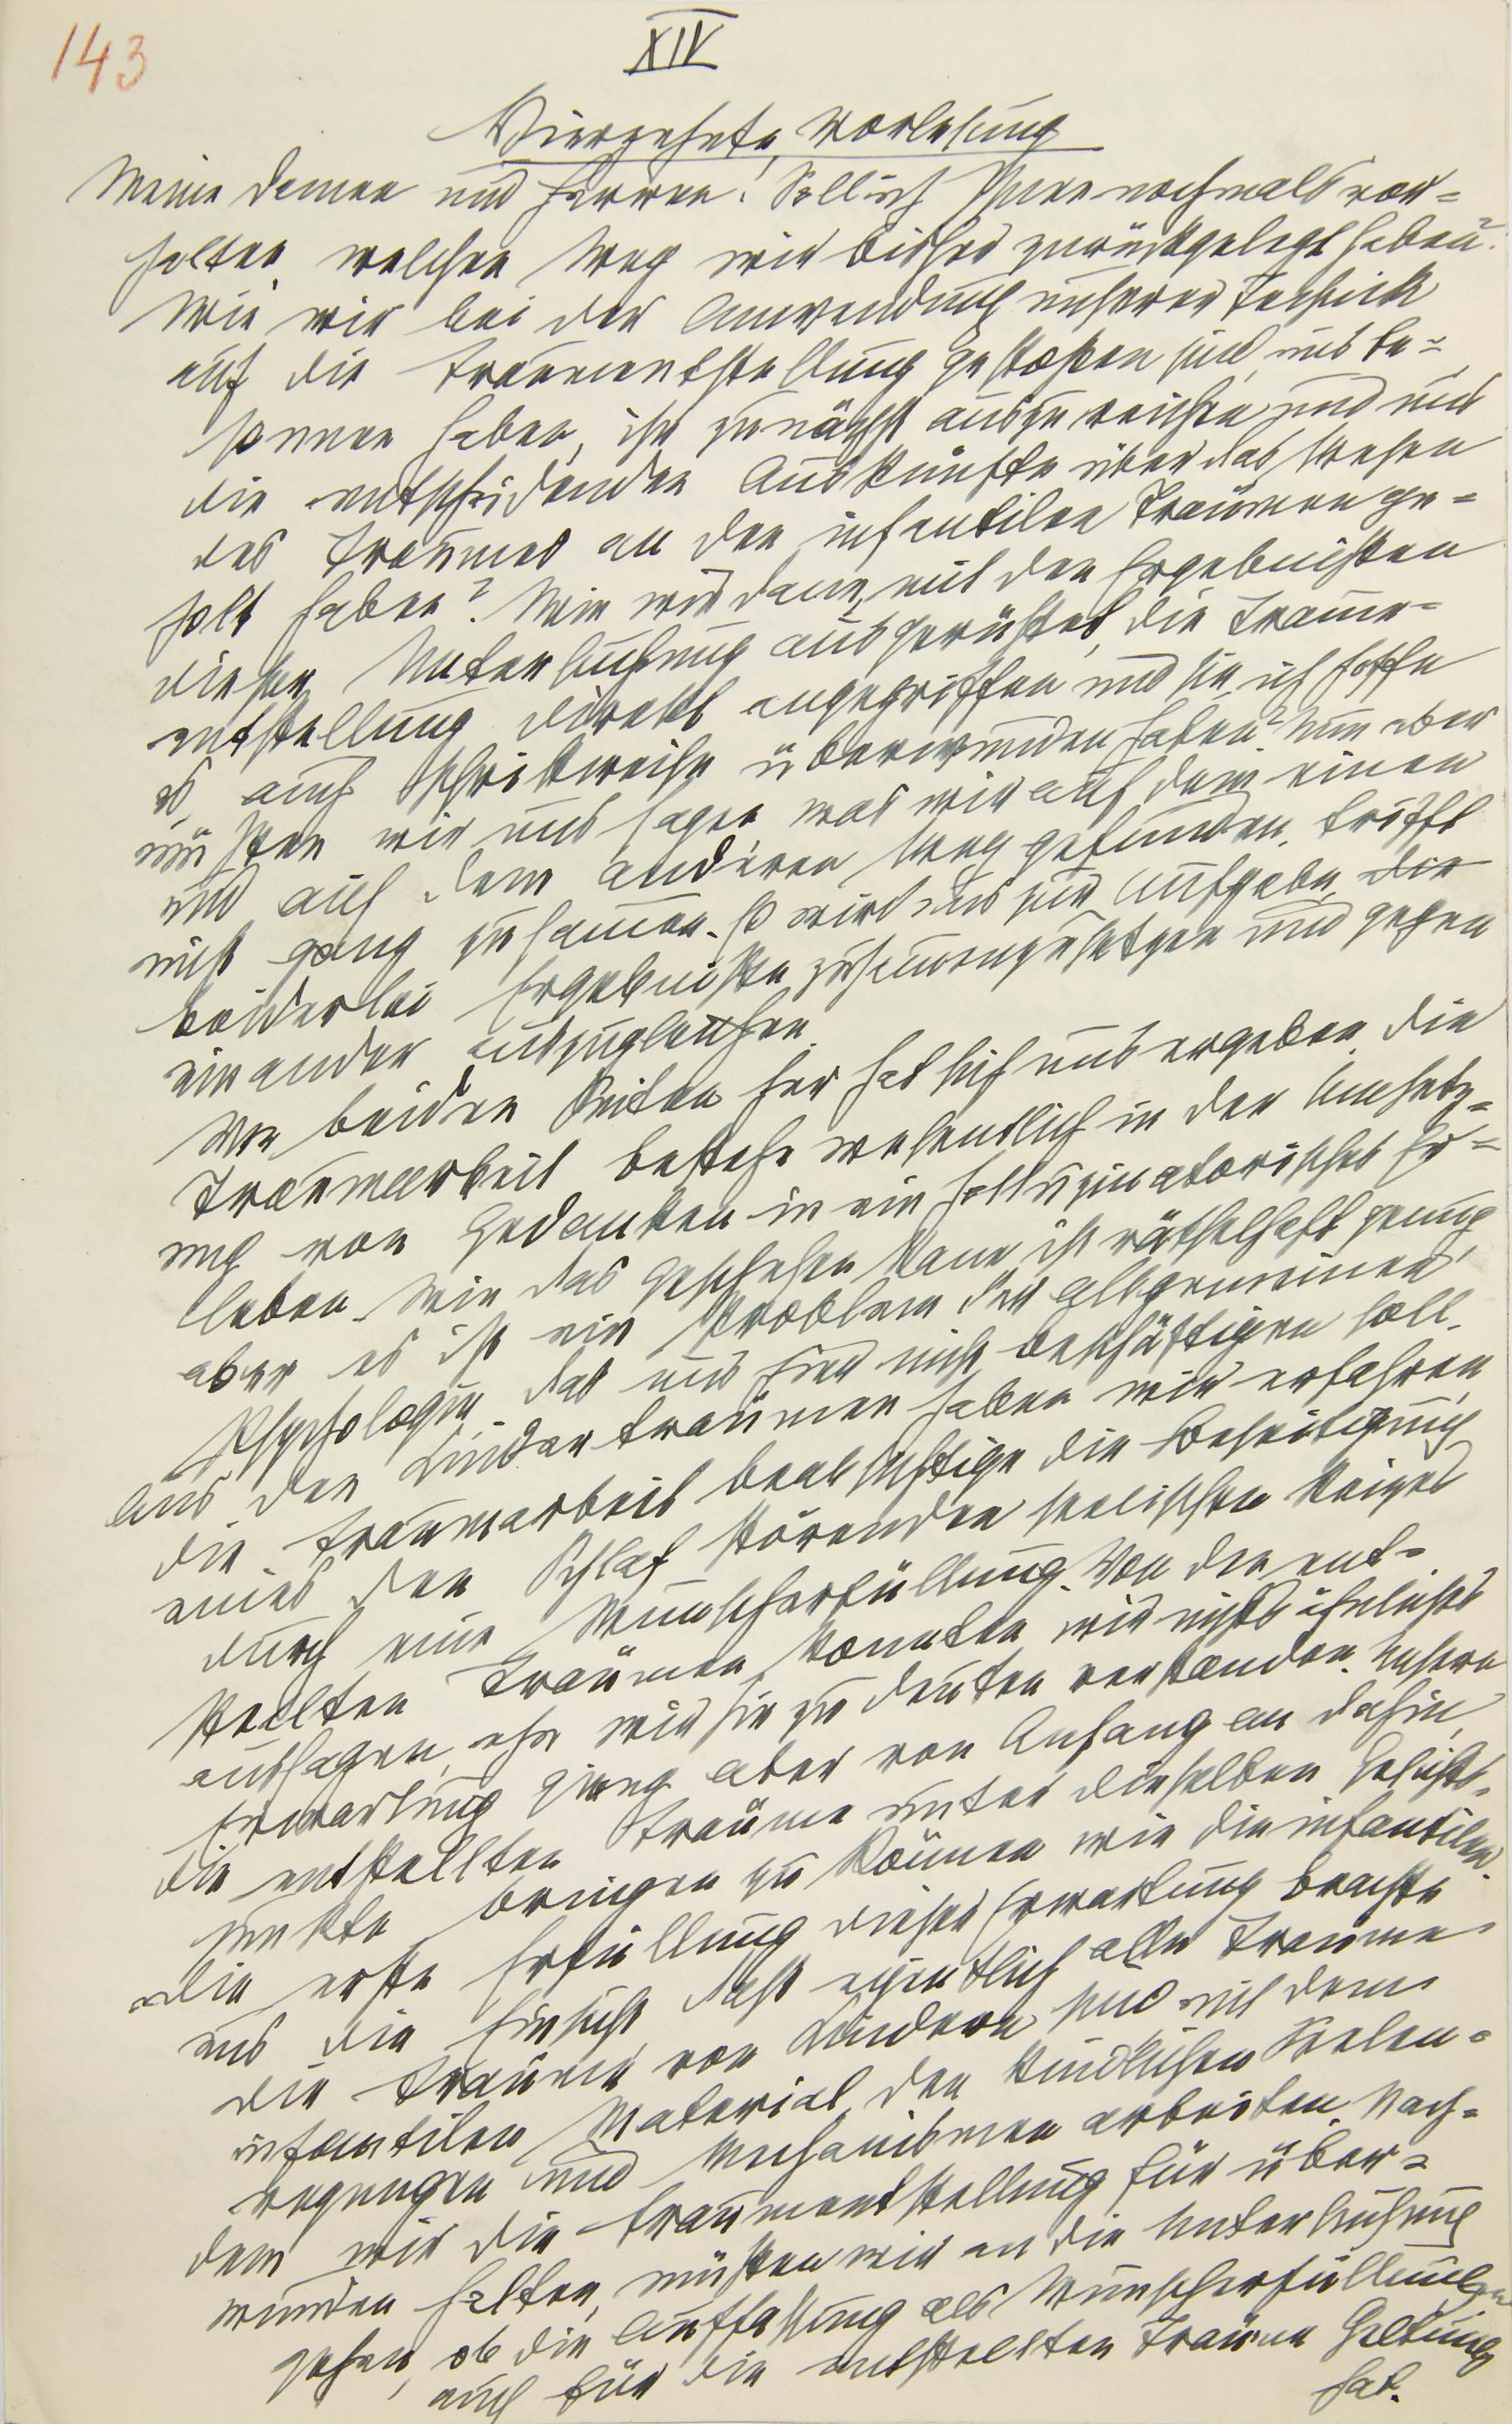 143
XIV
Vierzehnte Vorlesung
Meine Damen und Herren! Soll ich Ihnen nochmals vor=
halten, welchen Weg wir bisher zurückgelegt haben?
Wie wir bei der Anwendung unserer Technik
auf die Traumentstellung gestoßen sind, uns be=
sonnen haben, ihr zunächst auszuweichen und uns
die entscheidenden Auskünfte über das Wesen
des Traumes an den infantilen Träumen ge=
holt haben? Wie wir dann, mit den Ergebnissen
dieser Untersuchung ausgerüstet, die Traum=
entstellung direkt angegriffen und sie, ich hoffe
es, auch schrittweise überwunden haben? Nun aber
müssen wir uns sagen, was wir auf dem einen
und auf dem anderen Weg gefunden, trifft
nicht ganz zusammen. Es wird uns zur Aufgabe, die
beiderlei Ergebnisse zusammenzusetzen und gegen
einander auszugleichen.
Von beiden Seiten her hat sich uns ergeben, die
Traumarbeit bestehe wesentlich in der Umsetz=
ung von Gedanken in ein halluzinatorisches Er=
leben. Wie das geschehen kann, ist räthselhaft genug,
aber es ist ein Problem der allgemeinen
Psychologie, das uns hier nicht beschäftigen soll.
Aus den Kinderträumen haben wir erfahren,
die Traumarbeit beabsichtige die Beseitigung
eines den Schlaf störenden seelischen Reizes
durch eine Wunscherfüllung. Von den ent=
stellten Träumen konnten wir nichts ähnliches
aussagen, ehe wir sie zu deuten verstanden. Unsere
Erwartung ging aber von Anfang an dahin,
die entstellten Träume unter dieselben Gesichts=
punkte bringen zu können wie die infantilen.
Die erste Erfüllung dieser Erwartung brachte
uns die Einsicht, daß eigentlich alle Träume
die Träume von Kindern sind, mit dem
infantilen Material, den kindlichen Seelen=
regungen und Mechanismen arbeiten. Nach=
dem wir die Traumentstellung für über=
wunden halten, müssen wir an die Untersuchung
gehen, ob die Auffassung als Wunscherfüllungen
auch für die entstellten Träume Geltung
hat.